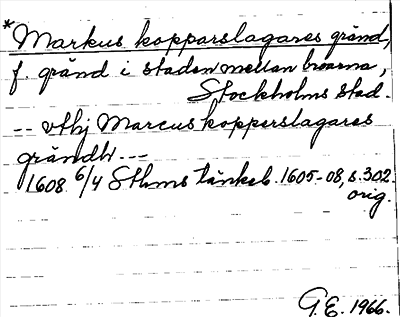 *Markus kopparslagares gränd,
f. gränd i staden mellan broarna,
Stockholms stad.
-- vthj Marcus kopperslagares
grändh ---
1608 6/4 Sthms tänkeb. 1605-08, s. 302.
orig.
G.E. 1966.